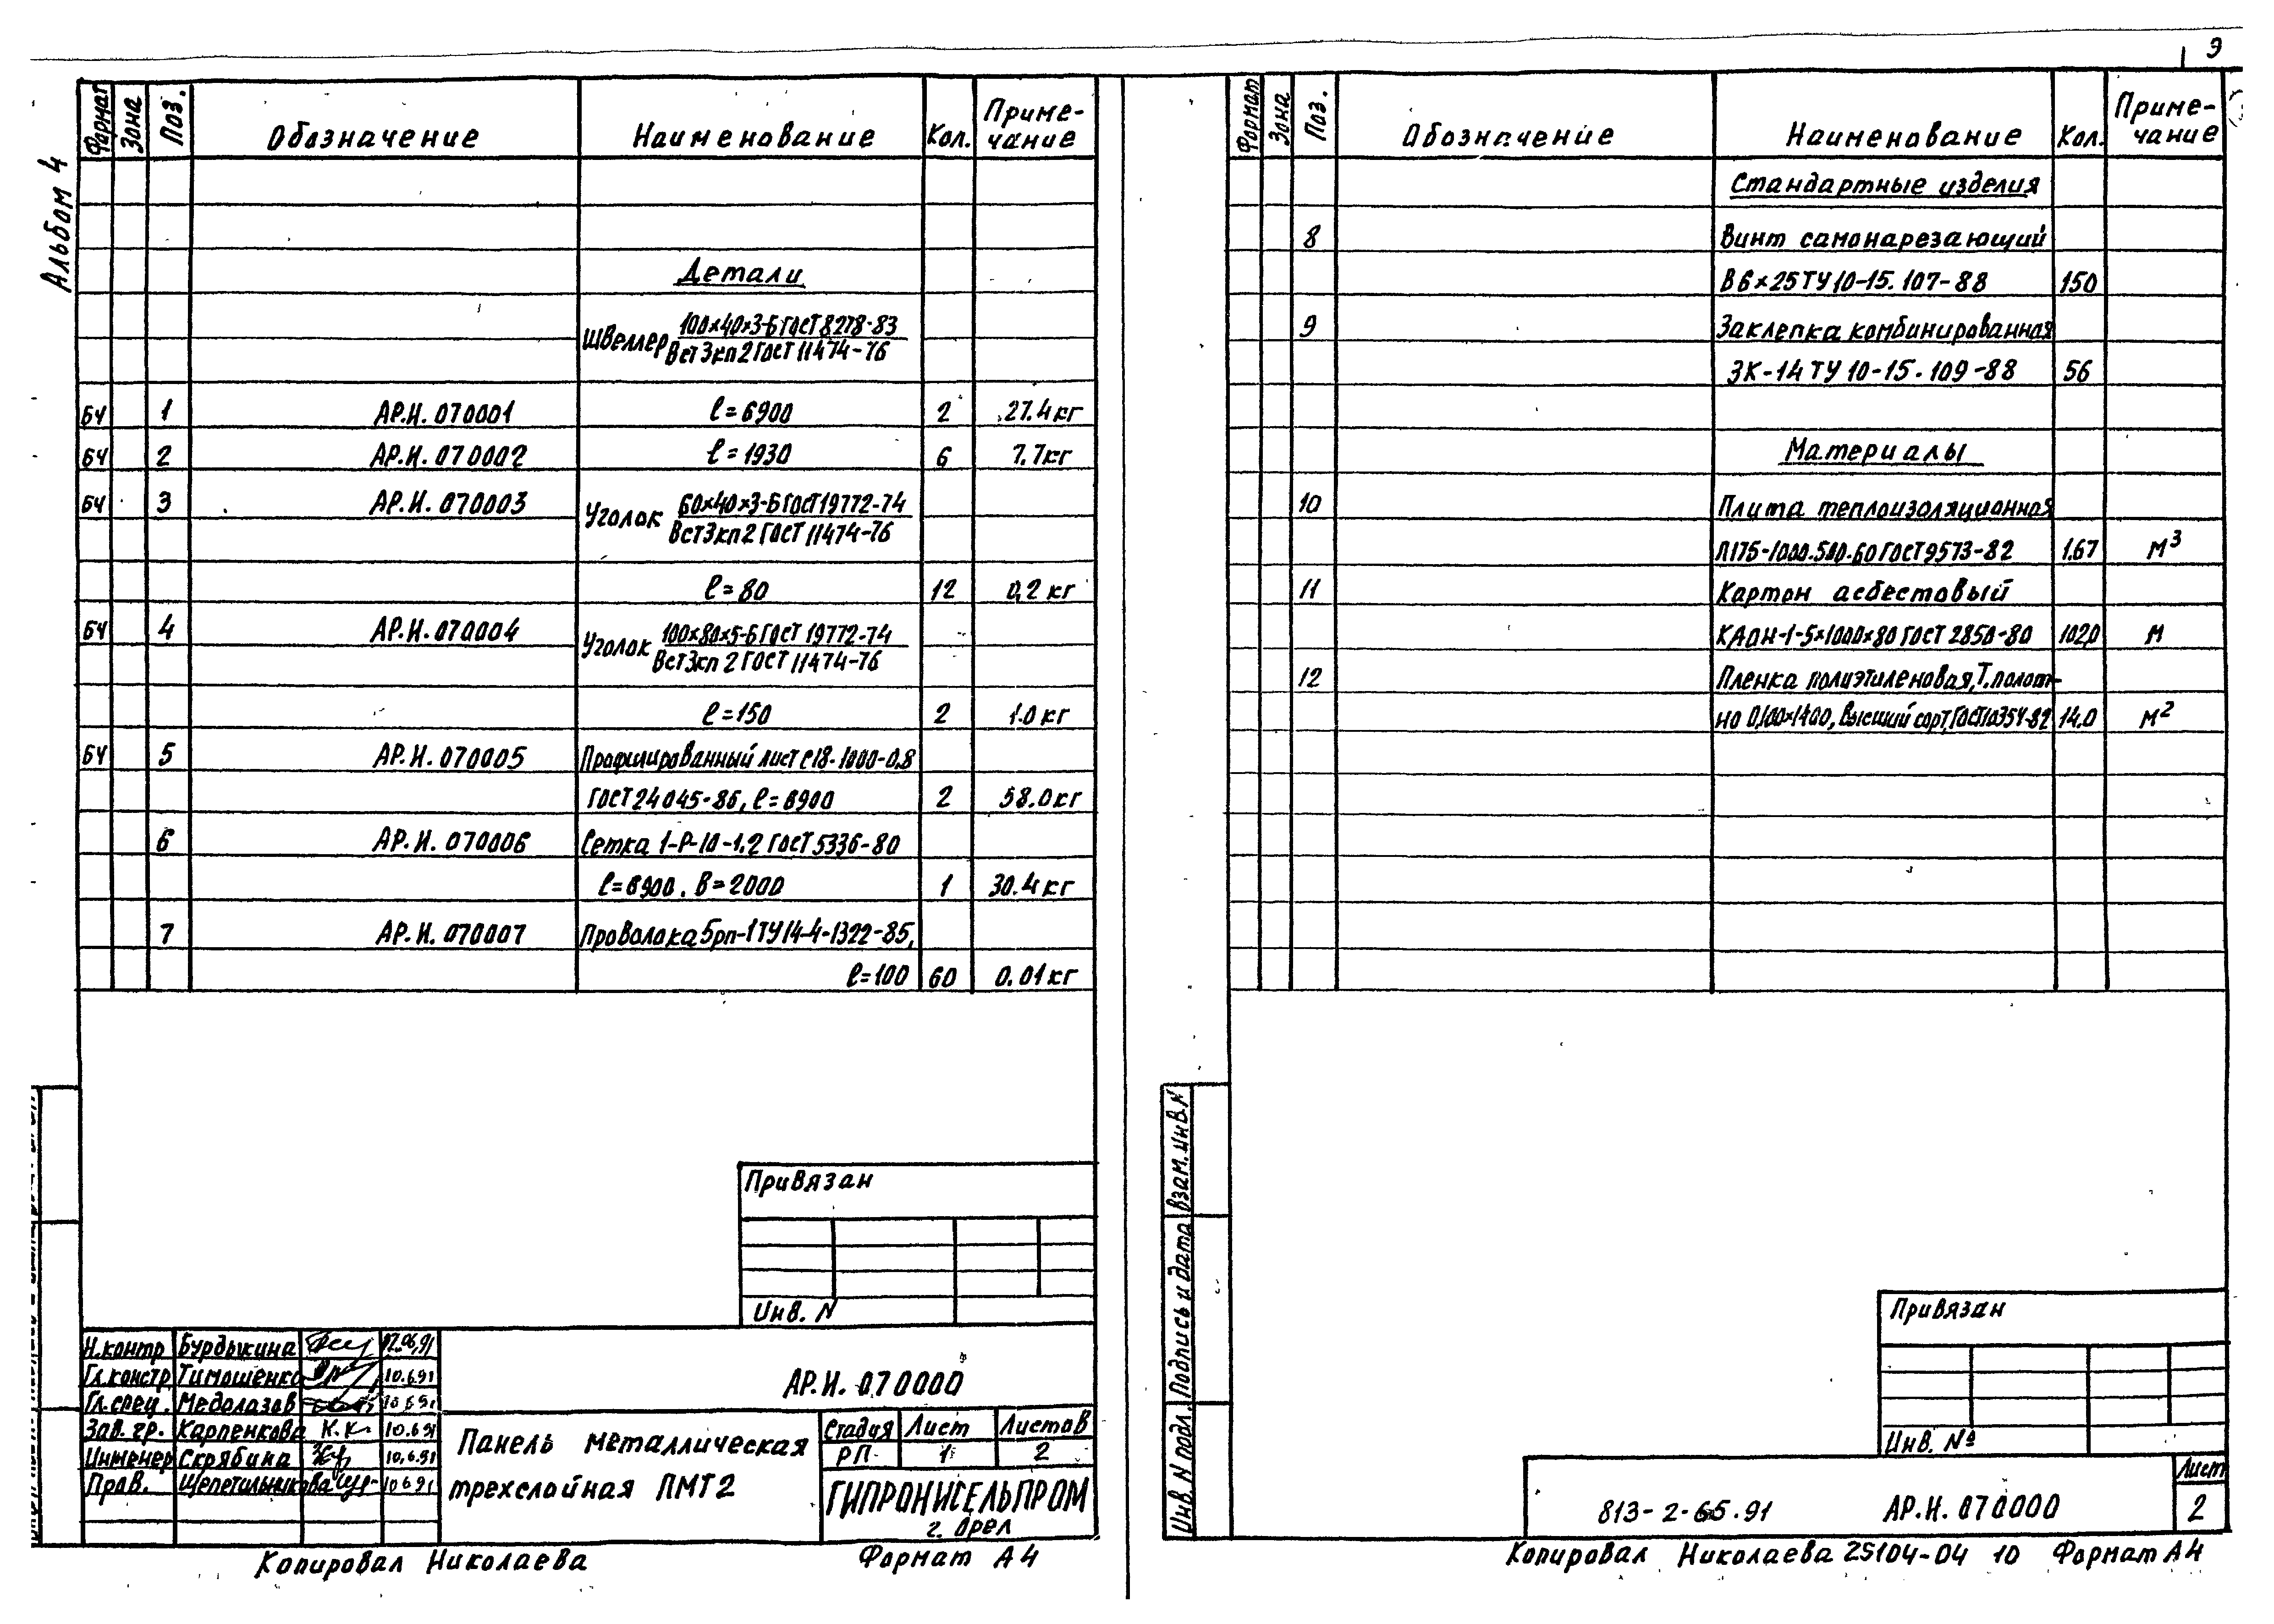 9
Альбом 4
Формат Зона Поз. Обозначение Наименование Кол. Приме-
чание
Детали
Швеллер 100×40×3-Б ГОСТ 8278-83
Вст3кп2 ГОСТ 11474-76
БЧ 1 АР.И. 070001 ℓ=6900 2 27.4кг
БЧ 2 АР.И. 070002 ℓ=1930 6 7.7кг
БЧ 3 АР.И. 070003 Уголок 60×40×3-Б ГОСТ 19772-74
Вст3кп2 ГОСТ 11474-76
ℓ=80 12 0,2 кг
БЧ 4 АР.И. 070004 Уголок 100×80×5-Б ГОСТ 19772-74
Вст3кп 2 ГОСТ 11474-76
ℓ=150 2 1.0 кг
БЧ 5 АР.И. 070005 Профилированный лист С18-1000-0,8
ГОСТ 24045-86, ℓ=6900 2 58.0кг
6 АР.И. 070006 Сетка 1-Р-10-1.2 ГОСТ 5336-80
ℓ=6900. В=2000 1 30.4кг
7 АР.И. 070007 Проволока 5рп-1 ТУ14-4-1322-85,
ℓ=100 60 0.01кг
Привязан
Инв. N
Н.контр Бурдыкина 12.06.91
Гл.констр Тимошенко 10.6.91
Гл.спец. Медолазов 10.6.91
Зав. гр. Карпенкова К.К 10.6.91
Инженер Скрябина 10.6.91
Пров. Щепетильникова 10.6.91
АР.И. 070000
Панель металлическая
трехслойная ПМТ2
Стадия Лист Листов
РП 1 2
ГИПРОНИСЕЛЬПРОМ
г. Орел
Копировал Николаева Формат А4
Формат Зона Поз. Обозначение Наименование Кол. Приме-
чание
Стандартные изделия
8 Винт самонарезающий
В6×25 ТУ10-15.107-88 150
9 Заклепка комбинированная
ЗК-14 ТУ 10-15.109-88 56
Материалы
10 Плита теплоизоляционная
П175-1000.500.60 ГОСТ 9573-82 1.67 м³
11 Картон асбестовый
КАОН-1-5×1000×80 ГОСТ 2850-80 102,0 м
12 Пленка полиэтиленовая, Т, полот-
но 0,100×1400, высший сорт, ГОСТ10354-82 14.0 м²
Взам. Инв. N
Подпись и дата
Инв. N подл.
Привязан
Инв. №
813-2-65.91 АР.И. 070000 Лист
2
Копировал Николаева 25104-04 10 Формат А4